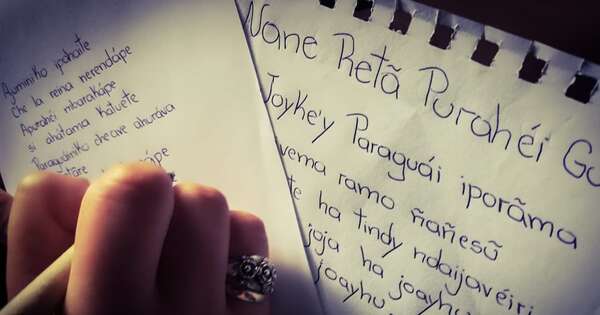 Ajuminiko ipohaite
che la reina nerendápe
Apurahéi mbarakápe
si ahátama katuete
Paraguáiniko cheave ahuráva
ápe
Ñane Retã Purahéi Gu
Joyke'y Paraguái iporãma
vema ramo ñañesũ
te ha tindy ndaijavéiri
joja ha joayhu
joayhu